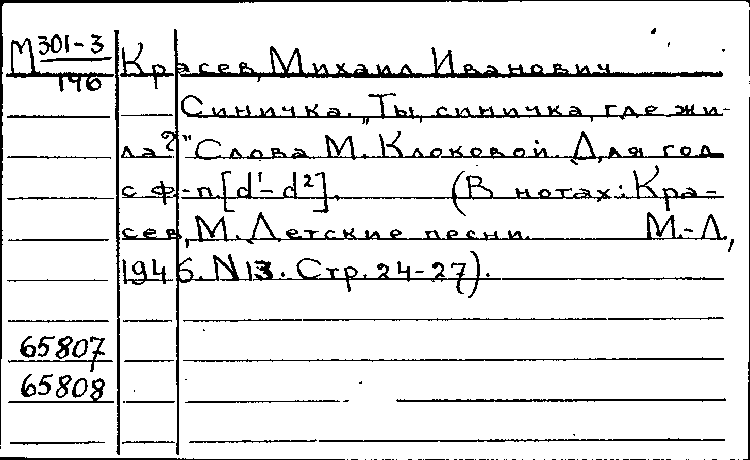 М 301-3
196
Красев, Михаил Иванович
Синичка. „Ты, синичка, где жи-
ла?" Слова М. Клоковой. Для гол
с ф-п. [d¹-d²]. (В нотах: Кра-
сев, М. Детские песни. М.-Л.,
1946. N13. Стр. 24-27).
65807
65808